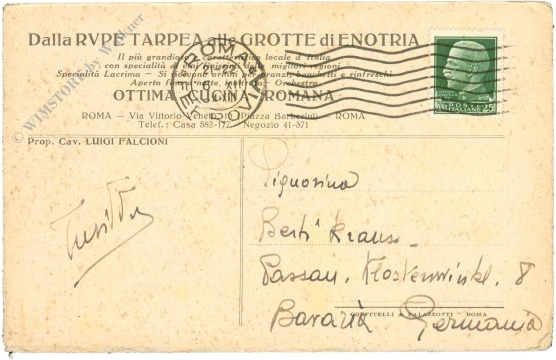 Dalla RVPE TARPEA alle GROTTE di ENOTRIA
Il più grandioso e caratteristico locale d'Italia
con specialità di vini tipici dei migliori regioni
Specialità Lacrima - Si ricevono ordini per pranzi, banchetti e rinfreschi
Aperto fino a notte, inoltrata - Orchestra
OTTIMA CUCINA ROMANA
ROMA - Via Vittorio Veneto, (Piazza Barberini) - ROMA
Telef.: Casa 582-177 - Negozio 41-371
Prop. Cav. LUIGI FALCIONI
ROMA
FERROVIA
POSTE
ITALIANE
25
© WIMSTORE by Wollner
Signorina
Berti Krauss
Passau. Klosterwinkl. 8
COPPITELLI & PALAZZOTTI - ROMA
Bavaria Germania